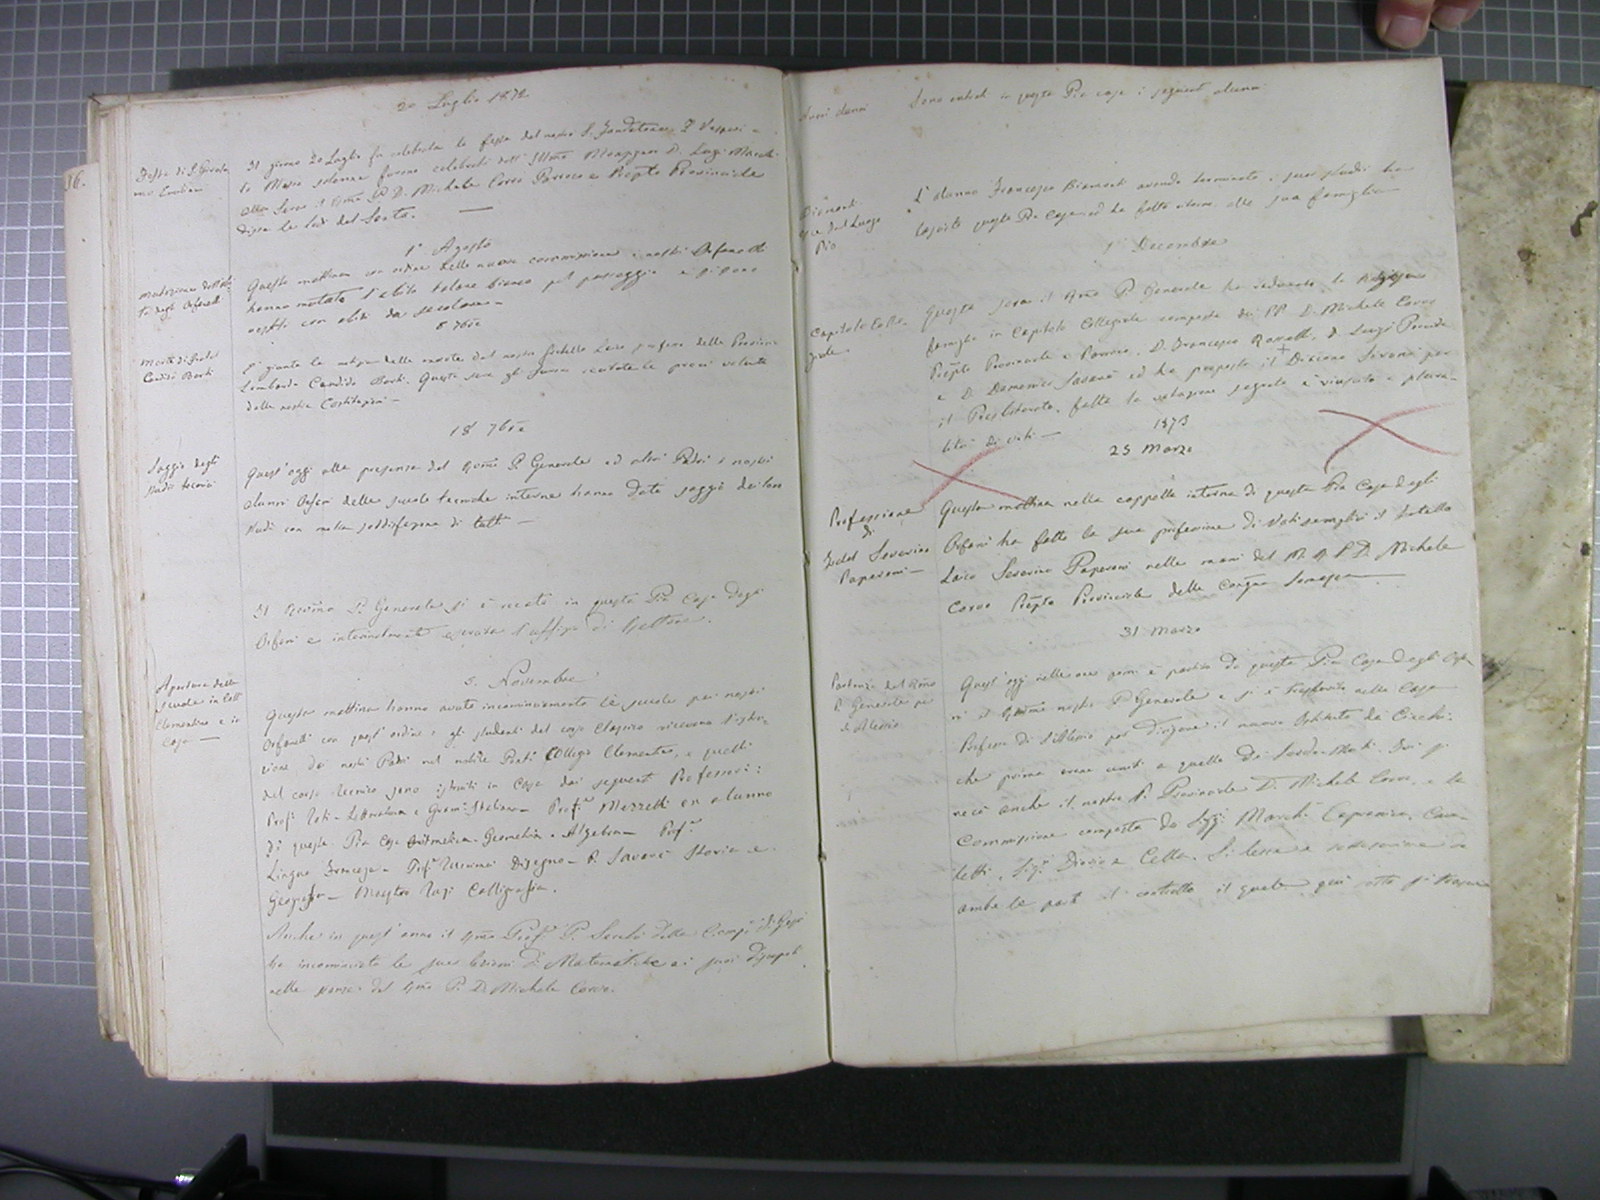 20 Luglio 1872
Festa di S. Girola-
mo Emiliani
Il giorno 20 Luglio fu celebrata la festa del nostro S. Fondatore. I Vesperi e
la Messa solenne furono celebrati dall' Illmo Monsignor D. Luigi
Alla Sera il Rmo P. D. Michele Corvo Parroco e Prepto Provinciale
disse le lodi del Santo.
1° Agosto
Mutazione dell'abi-
to degli Orfanelli
Questa mattina con ordine della nuova commissione i nostri Orfanelli
hanno mutato l'abito talare bianco pel passeggio e si sono
vestiti con abiti da secolare
8 7bre
Morte di Fratel
Candido Banti
È giunta la notizia della morte del nostro fratello Laico professo della Provincia
Lombarda Candido Banti. Questa sera gli furono recitate le preci volute
dalle nostre Costituzioni
18 7bre
Saggio degli
studi tecnici
Quest'oggi alla presenza del Rmo P. Generale ed altri Padri i nostri
alunni Orfani delle scuole tecniche interne hanno dato saggio dei loro
studi con molta soddisfazione di tutti
Il Revmo P. Generale si è recato in questa Pia Casa degli
Orfani e interinalmente l'uffizio di Rettore.
5. Novembre
Apertura delle
scuole in Coll.
Clementino e in
Casa
Questa mattina hanno avuto incominciamento le scuole pei nostri
Orfanelli con quest'ordine: gli studenti del corso classico ricevono l'istru-
zione dai nostri Padri nel nobile Ponti. Collegio Clementino, e quelli
del corso tecnico sono istruiti in Casa dai seguenti Professori:
Prof. Letteratura e Gram. Italiana Prof. Mezzetti ex alunno
di questa Pia Casa Aritmetica. Geometria e Algebra Prof.
Lingua Francese Prof. Disegno P. Savarè Storia e
Geografia Maestro Calligrafia.
Anche in quest'anno il Rmo Prof. P. Secchi della Comp. di Gesù
ha incominciato le sue lezioni di Matematiche ai suoi discepoli
nelle stanze del Rmo P. D. Michele Corvo.
Nuovi alunni
Sono entrati in questa Pia Casa i seguenti alunni:
Pio
L'alunno Francesco avendo terminato i suoi studi ha
lasciato questa Pia Casa ed ha fatto ritorno alla sua famiglia
1° Decembre
Capitolo Colle-
giale
Questa sera il Rmo P. Generale ha radunato la Religiosa
famiglia in Capitolo Collegiale composto dai PP. D. Michele Corvo
Prepto Provinciale e Parroco, D. Francesco D. Luigi Procida
e D. Domenico Savarè ed ha proposto il Diacono per
il Presbiterato, fatta la votazione segreta è vinsuto a plura-
lità di voti
1873
25 Marzo
Professione
di
Fratel Severino
Paperoni
Questa mattina nella cappella interna di questa Pia Casa degli
Orfani ha fatto la sua professione di Voti semplici il fratello
Laico Severino Paperoni nelle mani del M. R. P. D. Michele
Corvo Prepto Provinciale della Congne Somasca
31 Marzo
Partenza del Rmo
P. Generale per
S. Alessio
Quest'oggi nelle ore pom. è partito da questa Pia Casa degli Orfa-
ni il Rmo nostro P. Generale e si è trasferito nella Casa
Professa di S. Alessio per dirigere il nuovo Istituto dei Ciechi
che prima erano uniti a quello dei Sordo-Muti. Ivi si
recò anche il nostro P. Provinciale D. Michele Corvo, e la
Commissione composta da Sigg. Marchi Capranica, Cava-
letti, Sig. e Cella. Si lesse e si sottoscrisse da
ambe le parti il contratto il quale qui sotto si trascrive